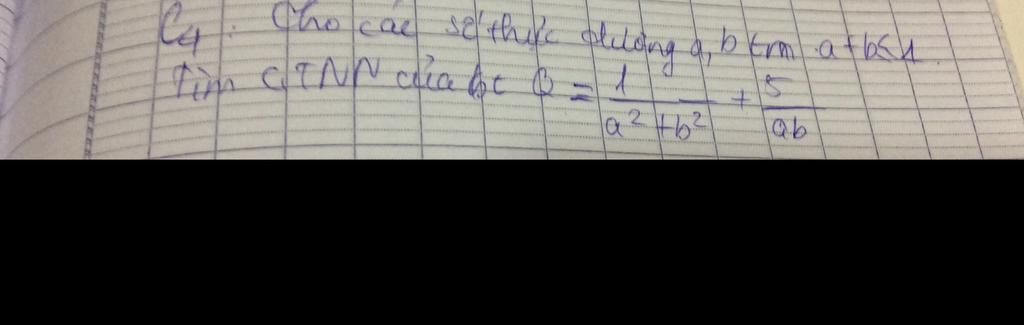 C4: Cho các số thực dương a, b t/m a + b ≤ 1.
Tìm GTNN của bt B = 1/(a² + b²) + 5/(ab)